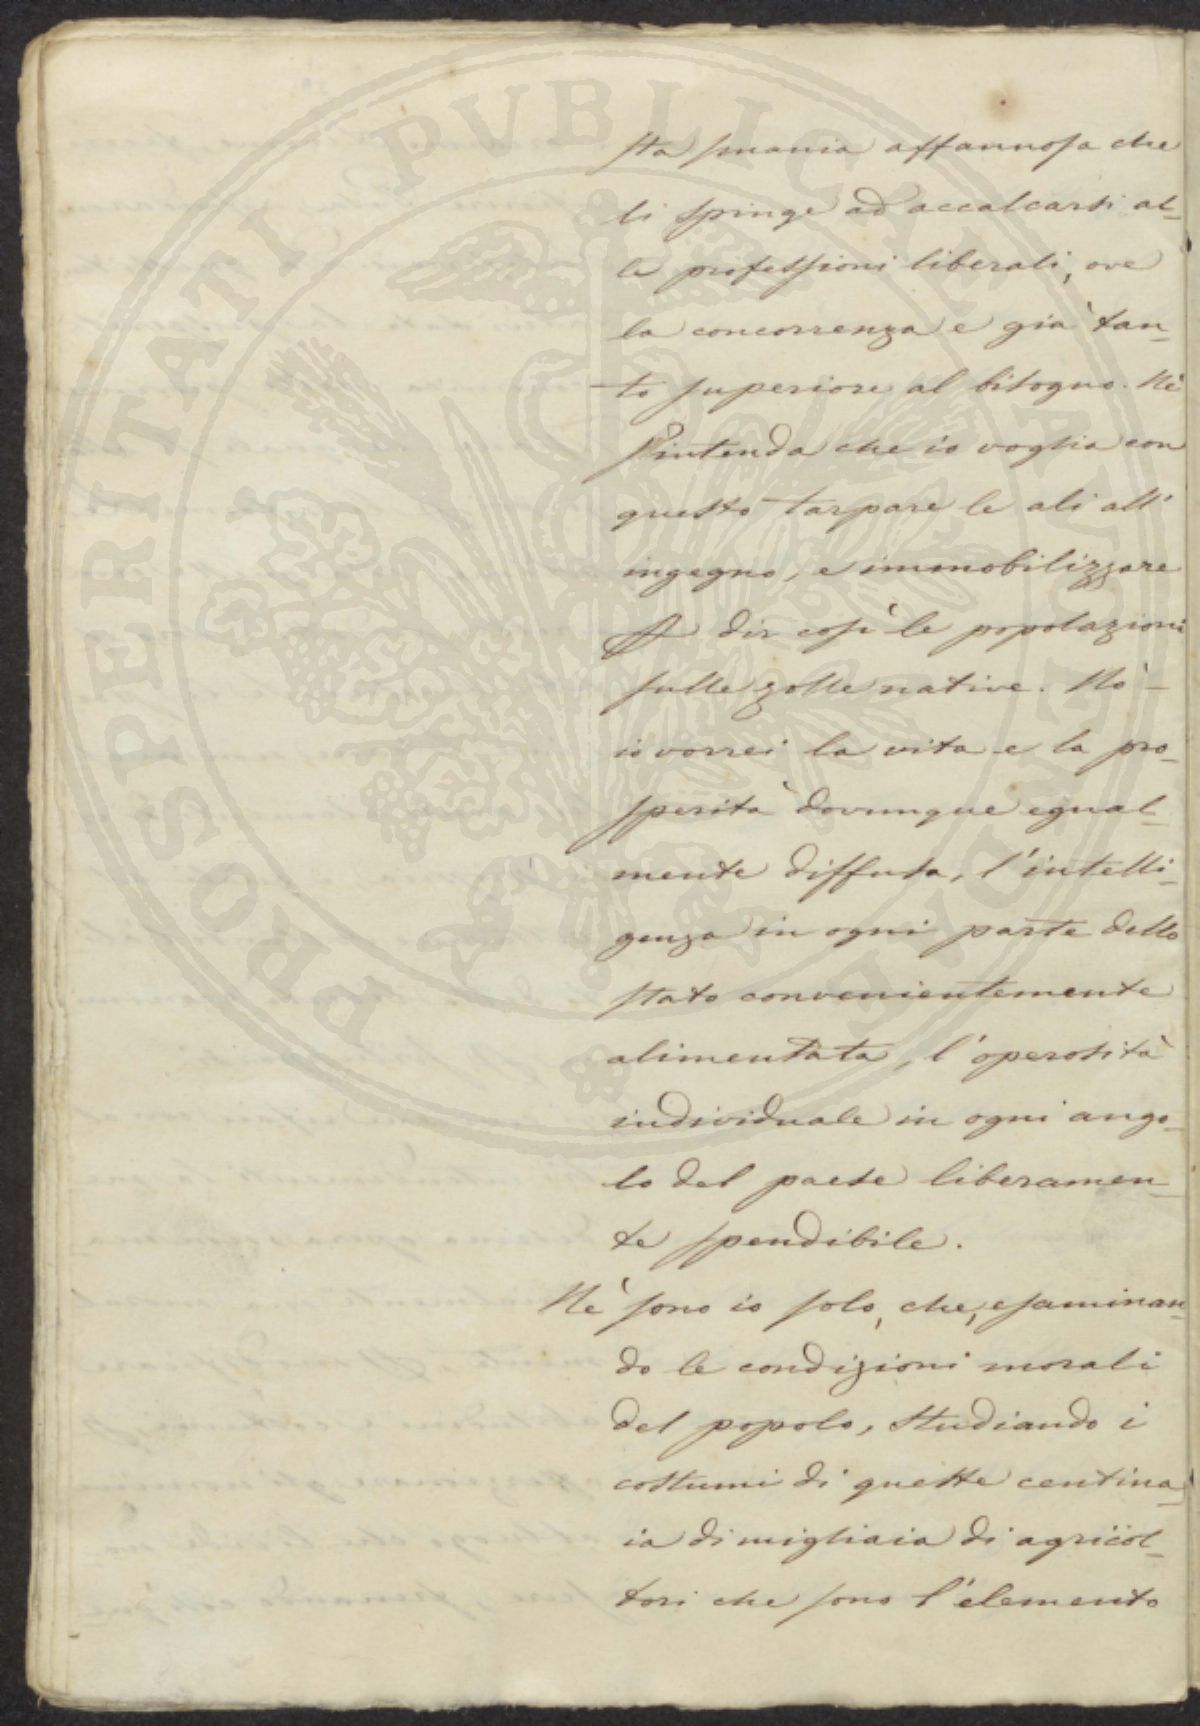 PROSPERITATI PVBLICAE AVGENDAE
sta smania affannosa che
li spinge ad accalcarsi al-
le professioni liberali, ove
la concorrenza e già tan-
to superiore al bisogno. Nè
s'intenda che io voglia con
questo tarpare le ali all'
ingegno, e immobilizzare
dir così le popolazioni
sulle zolle native. Nò -
io vorrei la vita e la pro-
sperità dovunque egual-
mente diffusa, l'intelli-
genza in ogni parte dello
stato convenientemente
alimentata, l'operosità
individuale in ogni ango-
lo del paese liberamen-
te spendibile.
Nè sono io solo, che, esaminan-
do le condizioni morali
del popolo, studiando i
costumi di queste centina-
ia di migliaia di agricol-
tori che sono l'elemento